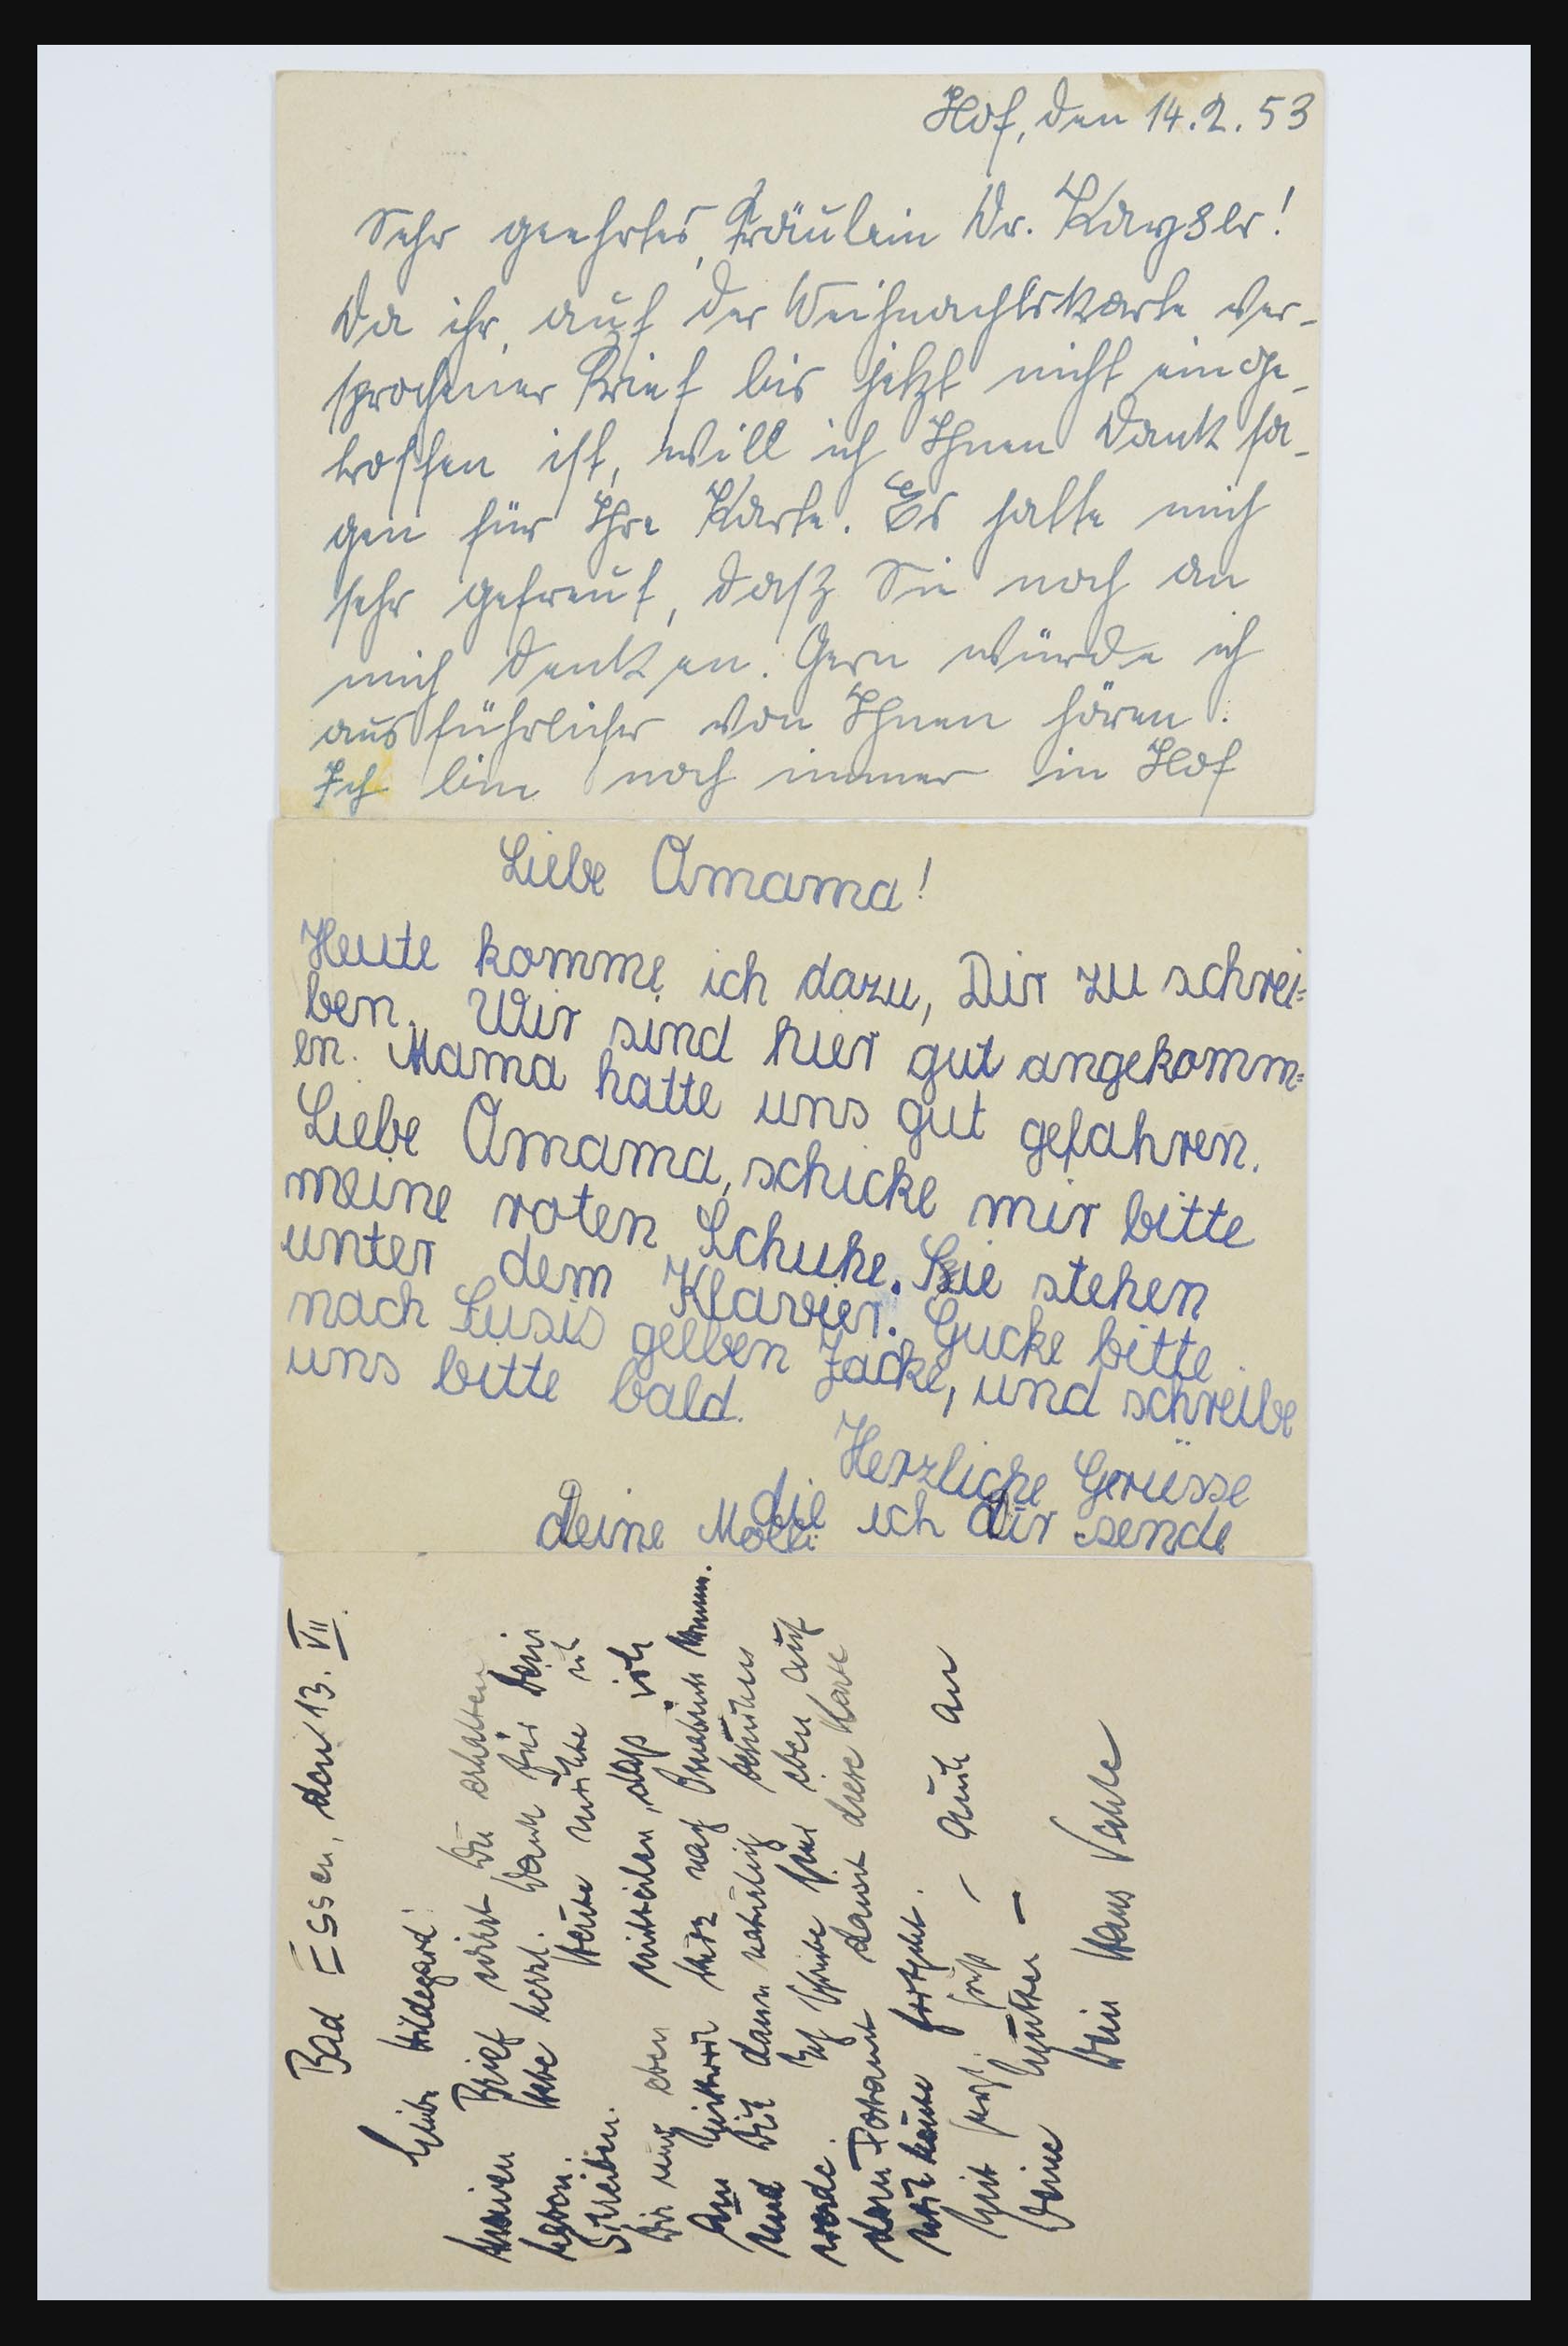 Hof, den 14.2.53
Sehr geehrtes Fräulein Dr. Kayser!
Da ihr, auf der Weihnachtskarte ver-
sprochener Brief bis jetzt nicht einge-
troffen ist, will ich Ihnen Dank sa-
gen für Ihre Karte. Es hatte mich
sehr gefreut, dasz Sie noch an
mich denken. Gern würde ich
ausführlicher von Ihnen hören.
Ich bin noch immer in Hof
Liebe Omama!
Heute komme ich dazu, Dir zu schrei=
ben. Wir sind hier gut angekomm=
en. Mama hatte uns gut gefahren.
Liebe Omama, schicke mir bitte
meine roten Schuhe. Sie stehen
unter dem Klavier. Gucke bitte
nach Susis gelben Jacke, und schreibe
uns bitte bald.
Herzliche Grüsse
die ich dir sende
deine
Bad Essen, den 13. VII.
Liebe Hildegard!
meinen Brief wirst Du erhalten
haben. Habe herzl. Dank für Dein
Schreiben. Heute möchte ich
Dir nur eben mitteilen, dass ich
am Mittwoch kurz nach
und Dich dann natürlich besuchen
werde. Ich schreibe hier eben auf
dem Postamt damit diese Karte
noch heute fortgeht.
Mit herzl. Gruß – auch an
Deine Mutter –
Dein Hans